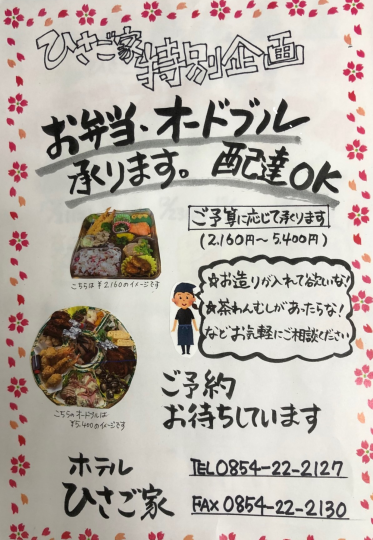 ひさご家 特別企画
お弁当、オードブル
承ります。 配達OK
ご予算に応じて承ります
(2,160円〜5,400円)
こちらは¥2,160のイメージです
☆お造りが入れて欲しいな!
☆茶わんむしがあったらな!
などお気軽にご相談ください
こちらのオードブルは
¥5,400のイメージです
ご予約
お待ちしています
ホテル
ひさご家
TEL 0854-22-2127
FAX 0854-22-2130